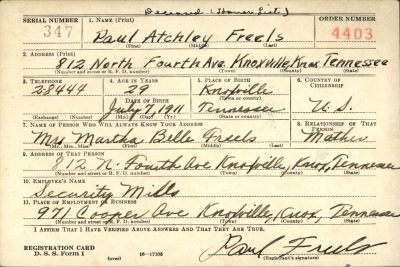 Deceased (Honor List)
SERIAL NUMBER 1. NAME (Print) ORDER NUMBER
347 Paul Atchley Freels 4403
(First) (Middle) (Last)
2. ADDRESS (Print)
812 North Fourth Ave. Knoxville, Knox, Tennessee
(Number and street or R. F. D. number) (Town) (County) (State)
3. TELEPHONE 4. AGE IN YEARS 5. PLACE OF BIRTH 6. COUNTRY OF CITIZENSHIP
28444 29 Knoxville
DATE OF BIRTH (Town or county)
July 7, 1911 Tennessee U. S.
(Exchange) (Number) (Mo.) (Day) (Yr.) (State or country)
7. NAME OF PERSON WHO WILL ALWAYS KNOW YOUR ADDRESS 8. RELATIONSHIP OF THAT PERSON
Mrs Martha Belle Freels Mother
(Mr., Mrs., Miss) (First) (Middle) (Last)
9. ADDRESS OF THAT PERSON
812 N. Fourth Ave Knoxville, Knox, Tennessee
(Number and street or R. F. D. number) (Town) (County) (State)
10. EMPLOYER'S NAME
Security Mills
11. PLACE OF EMPLOYMENT OR BUSINESS
971 Cooper Ave Knoxville, Knox, Tennessee
(Number and street or R. F. D. number) (Town) (County) (State)
I AFFIRM THAT I HAVE VERIFIED ABOVE ANSWERS AND THAT THEY ARE TRUE.
REGISTRATION CARD Paul Freels
D. S. S. Form 1 (over) 16-17105 (Registrant's signature)